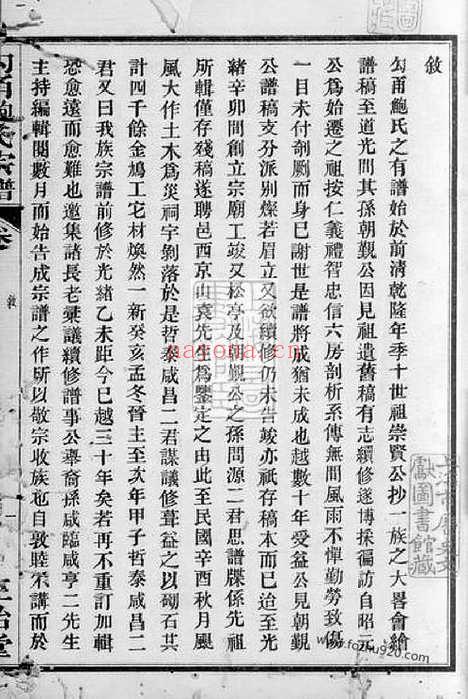 敘
勾甬鮑氏之有譜始於前清乾隆年季十世祖崇賢公抄一族之大畧會繪
譜稿至道光間其孫朝覲公因見祖遺舊稿有志續修遂博採徧訪自昭元
公爲始遷之祖按仁義禮智忠信六房剖析系傳無間風雨不憚勤勞致傷
一目未付剞劂而身已謝世是譜將成猶未成也越數十年受益公見朝覲
公譜稿支分派別燦若眉立又欲續修仍未告竣亦祇存稿本而已迨至光
緒辛卯間創立宗廟工竣又松亭及朝覲公之孫問源二君思譜牒係先祖
所輯僅存殘稿遂聘邑西京山袁先生爲鑒定之由此至民國辛酉秋月颶
風大作土木爲災祠宇剝落於是哲泰咸昌二君謀議修葺益之以砌石共
計四千餘金鳩工它材煥然一新癸亥孟冬晉主至次年甲子哲泰咸昌二
君又曰我族宗譜前修於光緒乙未距今已越三十年矣若再不重訂加輯
恐愈遠而愈難也邀集諸長老僉議續修譜事公舉裔孫咸臨咸亨二先生
主持編輯閱數月而始告成宗譜之作所以敬宗收族也自敦睦不講而於
勾甬鮑氏宗譜
卷
敘
一